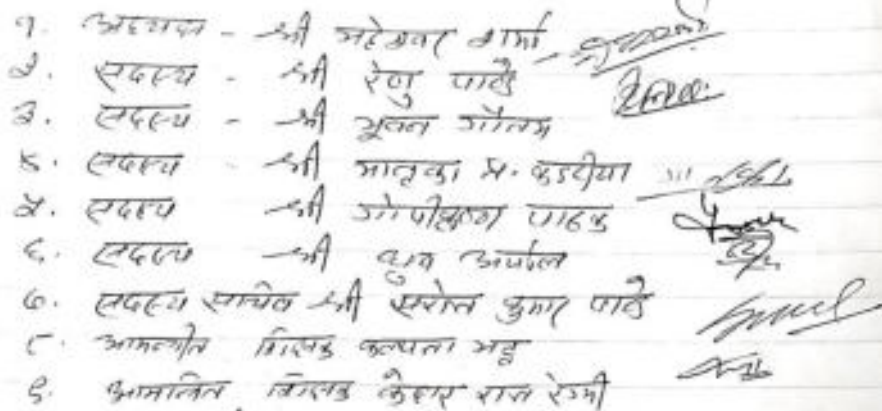 १. अध्यक्ष - श्री महेश्वर शर्मा
२. सदस्य - श्री रेणु पाण्डे
३. सदस्य - श्री भूवन गौतम
४. सदस्य - श्री मातृका प्र. कडरीया
५. सदस्य श्री गोपीकृष्ण पाठक
६. सदस्य श्री ध्रुव अर्याल
७. सदस्य सचिव श्री सरोज कुमार पाण्डे
८. आमन्त्रीत शिक्षक कल्पना भट्ट
९. आमन्त्रित शिक्षक केदार राज रेग्मी